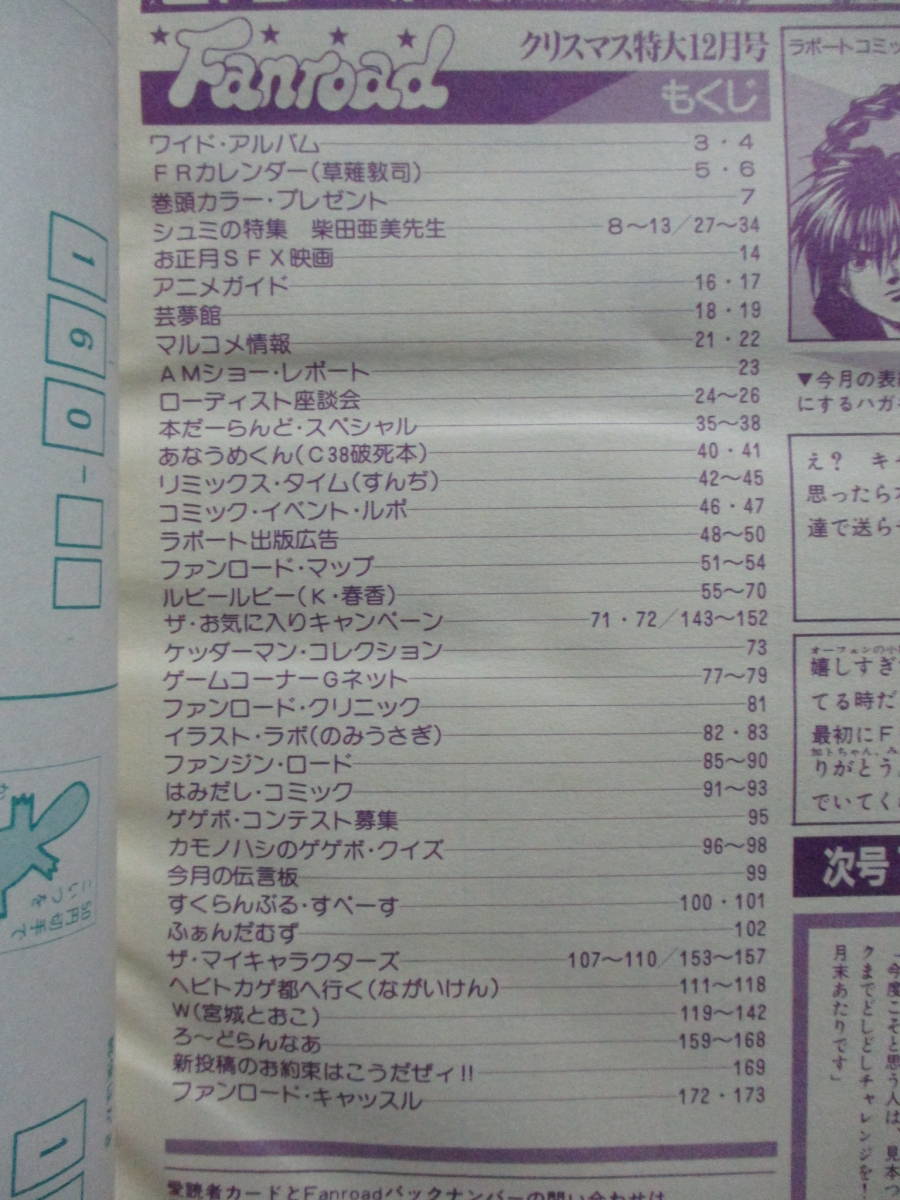 Fanroad
クリスマス特大12月号
もくじ
ワイド・アルバム 3・4
FRカレンダー(草薙敦司) 5・6
巻頭カラー・プレゼント 7
シュミの特集 柴田亜美先生 8〜13/27〜34
お正月SFX映画 14
アニメガイド 16・17
芸夢館 18・19
マルコメ情報 21・22
AMショー・レポート 23
ローディスト座談会 24〜26
本だーらんど・スペシャル 35〜38
あなうめくん(C38破死本) 40・41
リミックス・タイム(すんぢ) 42〜45
コミック・イベント・ルポ 46・47
ラポート出版広告 48〜50
ファンロード・マップ 51〜54
ルビールビー(K・春香) 55〜70
ザ・お気に入りキャンペーン 71・72/143〜152
ケッダーマン・コレクション 73
ゲームコーナーGネット 77〜79
ファンロード・クリニック 81
イラスト・ラボ(のみうさぎ) 82・83
ファンジン・ロード 85〜90
はみだし・コミック 91〜93
ゲゲボ・コンテスト募集 95
カモノハシのゲゲボ・クイズ 96〜98
今月の伝言板 99
すくらんぶる・すぺーす 100・101
ふぁんだむず 102
ザ・マイキャラクターズ 107〜110/153〜157
ヘビトカゲ都へ行く(ながいけん) 111〜118
W(宮城とおこ) 119〜142
ろ〜どらんなあ 159〜168
新投稿のお約束はこうだぜィ!! 169
ファンロード・キャッスル 172・173
愛読者カードとFanroadバックナンバーの問い合わせは
ラポートコミッ
▼今月の表
にするハガ
え? キ
思ったら
達で送ら
オーフェンの小
嬉しすぎ
てる時だ
最初にF
加トちゃん、み
りがとう
でいてく
次号
「今度こそと思う人は、見本つ
クまでどしどしチャレンジを!
月末あたりです」
160-
50円切手で
こいつを
1